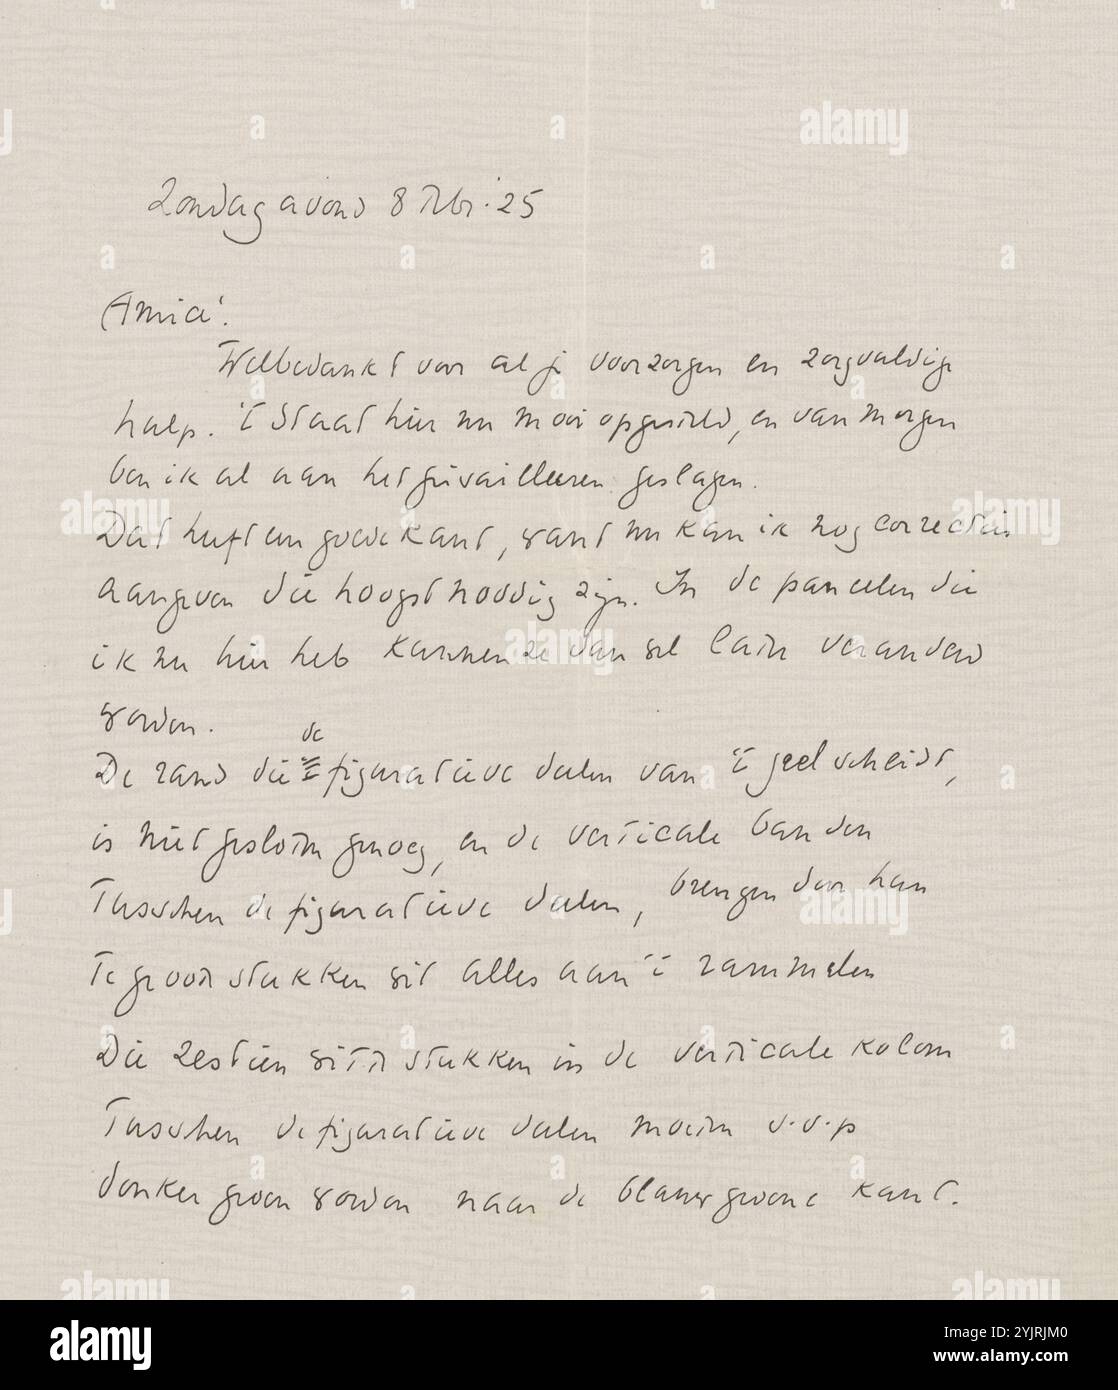 Zondag avond 8 Febr. 25
Amice!
Welbedankt voor al je voorzorgen en zorgvuldige
hulp. 't Staat hier nu mooi opgesteld, en van morgen
ben ik al aan het geslagen.
Dat heeft een goede kant, want nu kan ik nog correcties
aangeven die hoogst noodig zijn. In de paneelen die
ik nu hier heb kunnen ze dan wel laten veranderd
worden.
de
De rand die figuratieve deelen van 't geel scheidt,
is niet gesloten genoeg, en de verticale banden
Tusschen de figuratieve deelen, brengen door hun
Te groote stukken wit alles aan 't rammelen
Die zestien witte stukken in de verticale kolom
Tusschen de figuratieve deelen moeten v.v.p
donker groen worden naar de blauwgroene kant.
alamy
Image ID: 2YJRJM0
www.alamy.com